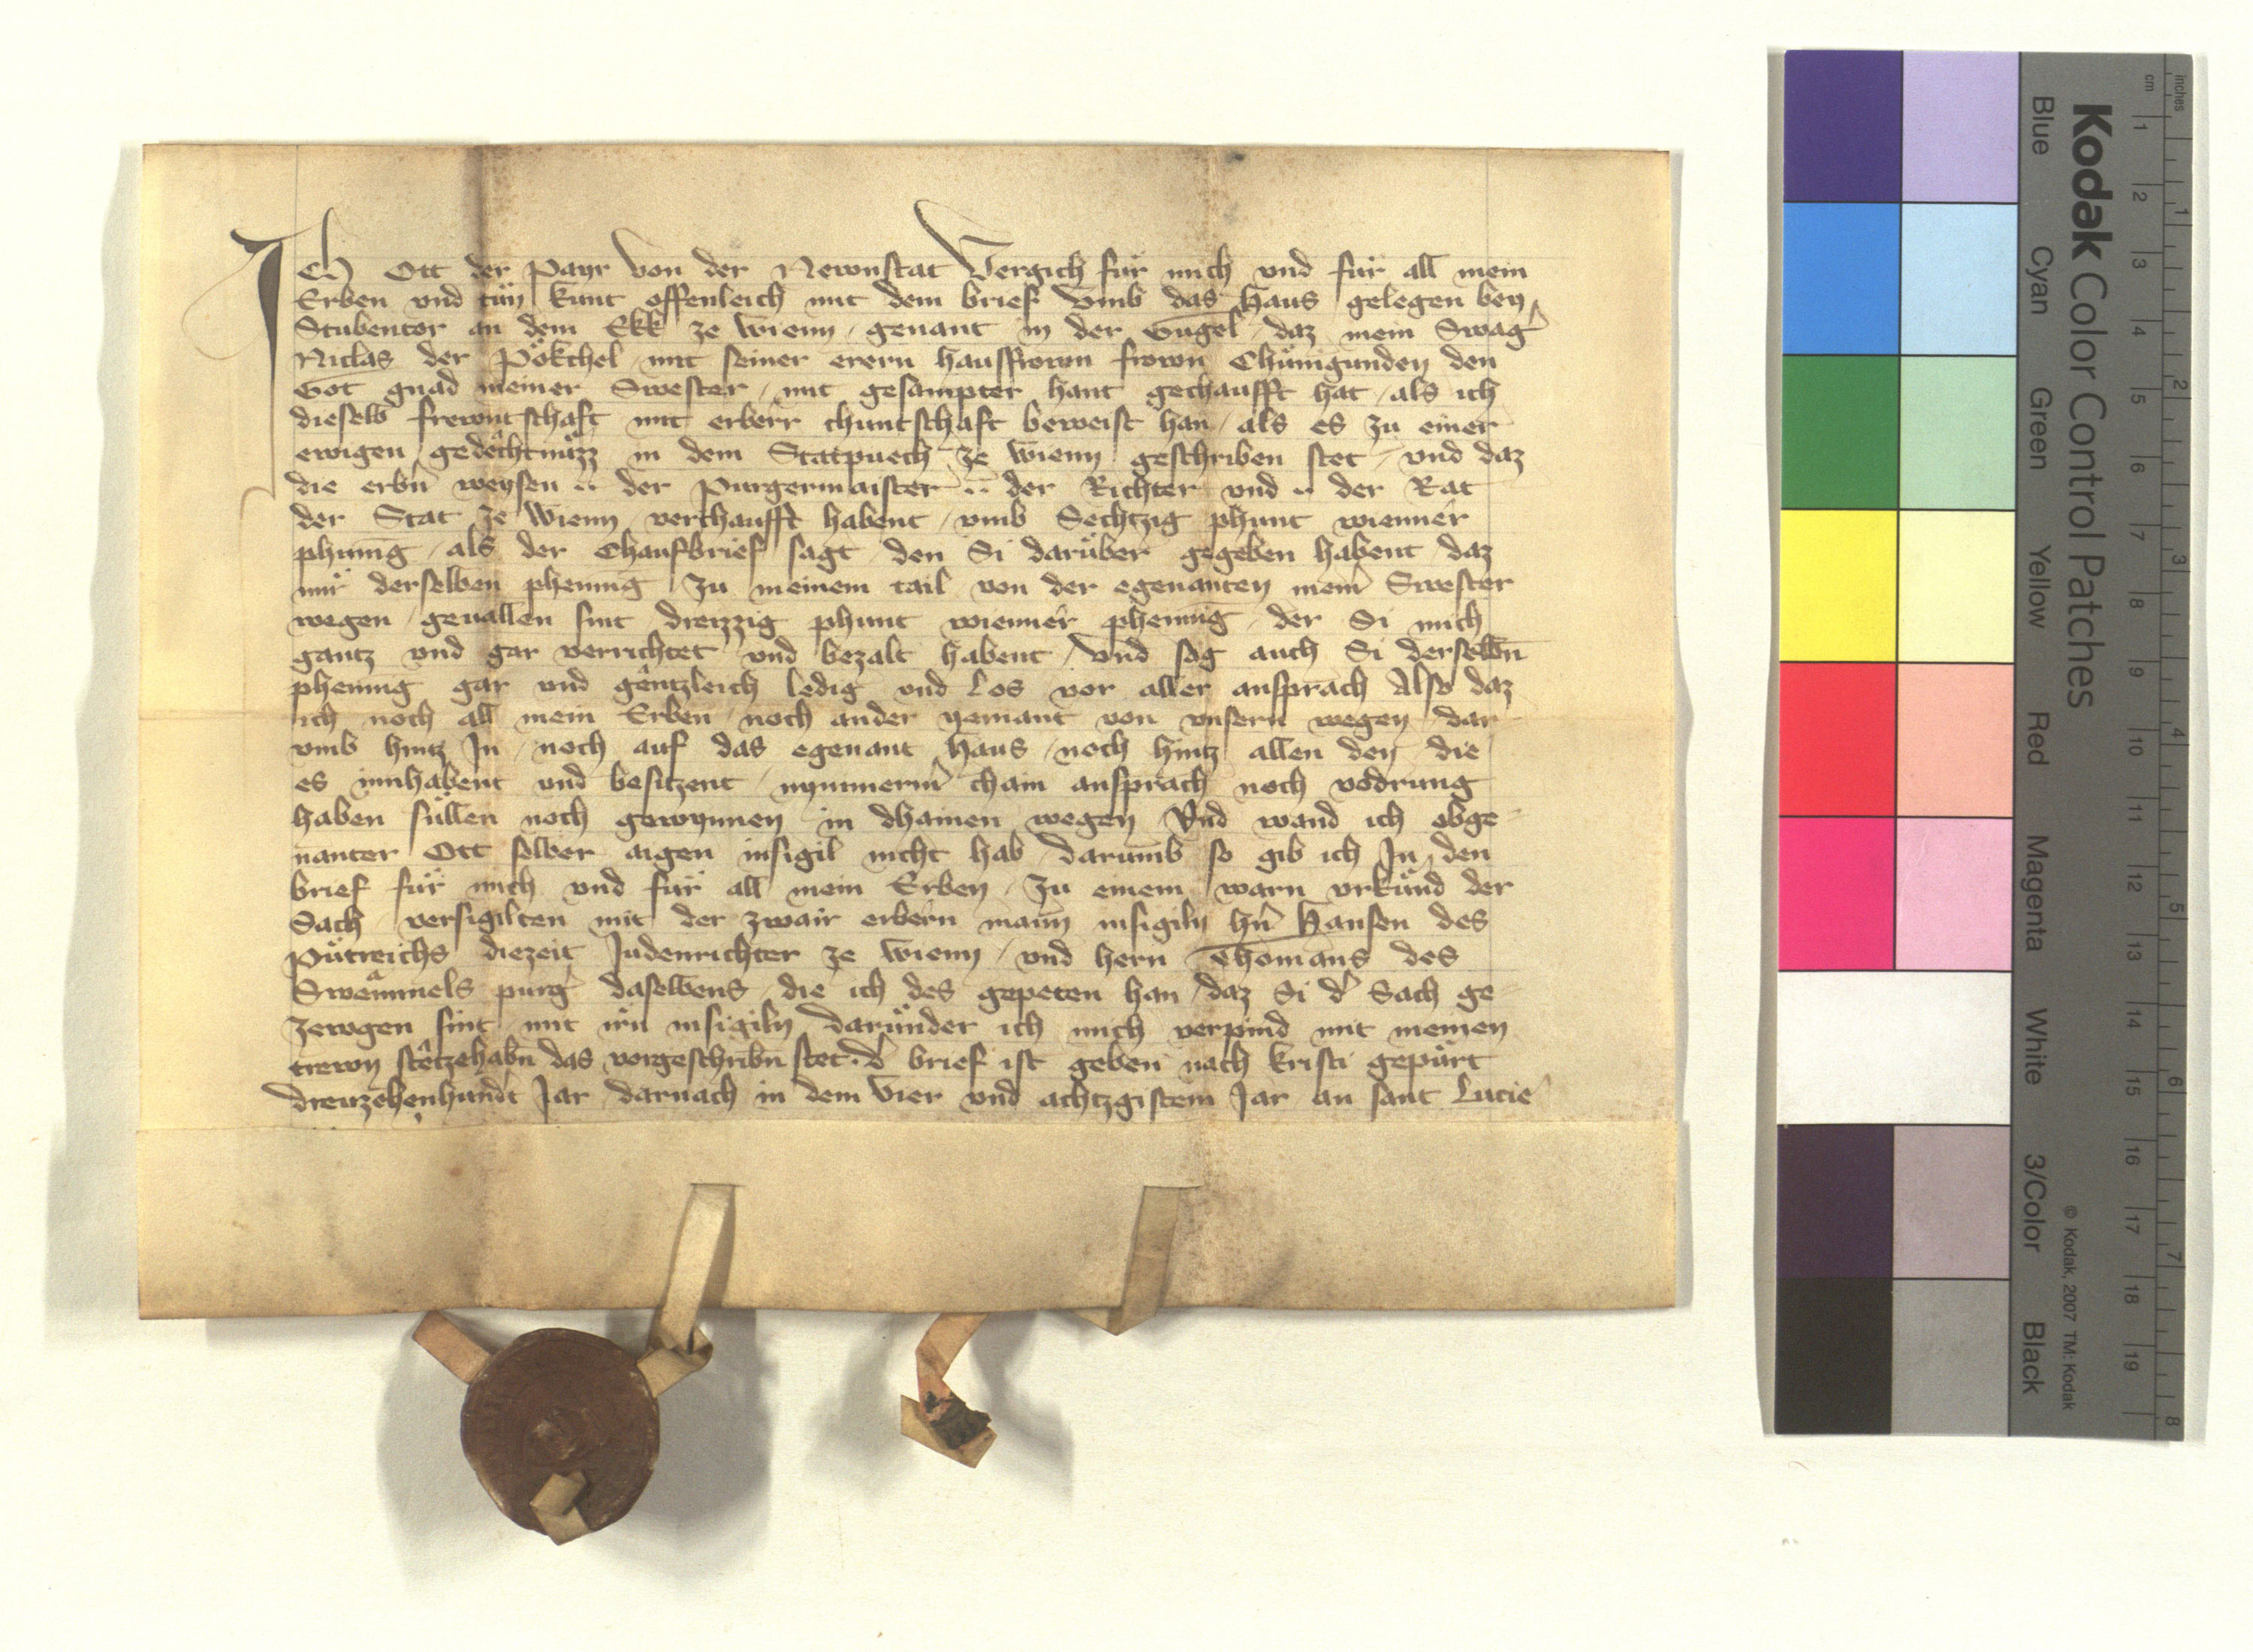 Ich Ott der Payr von der Newnstat Vergich für mich vnd für all mein
Erben vnd tün kunt offenleich mit dem brief vmb das Haus gelegen bey
Stubentor an dem Ekk ze Wienn genant in der Gugel daz mein Swag̉
Niclas der Pökchel mit seiner erern hausfrown frown Chünigunden den
Got gnad meiner Swester mit gesampter hant gechaufft hat als ich
dieselb frewntschaft mit erberr chuntschaft beweist han als es zu einer
ewigen gedêchtnüzz in dem Statpuech ze Wienn geschriben stet vnd daz
die erbn̄ weysen .. der Purgermaister .. der Richter vnd .. der Rat
der Stat ze Wienn verchaufft habent vmb Sechtzig phunt wienner
phēnig als der Chaufbrief sagt den Si darüber gegeben habent daz
mir derselben phennig zu meinem tail von der egenanten mein̉ Swester
wegen geuallen sint dreizzig phunt wienner phennig der Si mich
gantz vnd gar verrichtet vnd bezalt habent vnd sag auch Si derselbn̄
phennig gar vnd gêntzleich ledig vnd los vor aller ansprach Also daz
ich noch all mein Erben noch ander yemant von vnsern wegen dar
vmb hintz In noch auf das egenant Haus noch hintz allen den die
es innhabent vnd besitzent nymmerm̉ chain ansprach noch vodrung
haben süllen noch gewynnen in dhainen wegen Vnd wand ich obge
nanter Ott selber aigen insigil nicht hab darumb so gib ich In den
brief für mich vnd für all mein Erben zu einem warn vrkünd der
Sach versigilten mit der zwair erbern mann insigiln hn̉ Hansen des
Pütreichs diezeit Judenrichter ze Wienn vnd hern Thomans des
Swêmmels purg̉ daselbens die ich des gepeten han daz Si d̉ Sach ge
zewgen sint mit irn insigiln darunder ich mich verpind mit meinen
trewn stêtzehabn̄ das vorgeschribn̄ stet. d̉ brief ist geben nach Kristi gepürt
drewzehenhundt̉ Jar darnach in dem Vier vnd achtzgistem Jar an sant Lucie
Kodak Color Control Patches
Blue Cyan Green Yellow Red Magenta White 3/Color Black
© Kodak, 2007 TM: Kodak
cm 1 2 3 4 5 6 7 8 9 10 11 12 13 14 15 16 17 18 19
inches 1 2 3 4 5 6 7 8